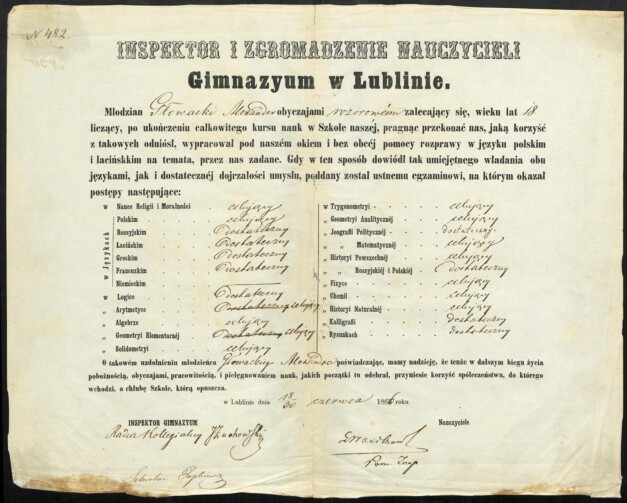 N 482.
INSPEKTOR I ZGROMADZENIE NAUCZYCIELI
Gimnazyum w Lublinie.
Młodzian Głowacki Alexander obyczajami wzorowémi zalecający się, wieku lat 18
liczący, po ukończeniu całkowitego kursu nauk w Szkole naszéj, pragnąc przekonać nas, jaką korzyść
z takowych odniósł, wypracował pod naszém okiem i bez obcéj pomocy rozprawy w języku polskim
i łacińskim na temata, przez nas zadane. Gdy w ten sposób dowiódł tak umiejętnego władania obu
językami, jak i dostatecznéj dojrzałości umysłu, poddany został ustnemu egzaminowi, na którym okazał
postępy następujące:
w Nauce Religii i Moralności celujący
w Językach
Polskim celujący
Rossyjskim dostateczny
Łacińskim dostateczny
Greckim dostateczny
Francuzkim dostateczny
Niemieckim
w Logice dostateczny
„ Arytmetyce dostateczny celujący
„ Algebrze celujący
„ Geometryi Elementarnéj dostateczny celujący
„ Solidometryi celujący
w Trygonometryi celujący
„ Geometryi Analitycznéj celujący
„ Jeografii Politycznéj dostateczny
„ „ Matematycznéj celujący
„ Historyi Powszechnéj celujący
„ „ Rossyjskiéj i Polskiéj dostateczny
„ Fizyce celujący
„ Chemii celujący
„ Historyi Naturalnéj celujący
„ Kalligrafii dostateczny
„ Rysunkach dostateczny
O takowém uzdolnieniu młodzieńca poświadczając, mamy nadzieję, że tenże w dalszym biegu życia
pobożnością, obyczajami, pracowitością, i pielęgnowaniem nauk, jakich początki tu odebrał, przyniesie korzyść społeczeństwu, do którego
wchodzi, a chlubę Szkole, którą opuszcza.
w Lublinie dnia 18/30 czerwca 1866 roku
INSPEKTOR GIMNAZYUM
Nauczyciele
Radca Kollegialny